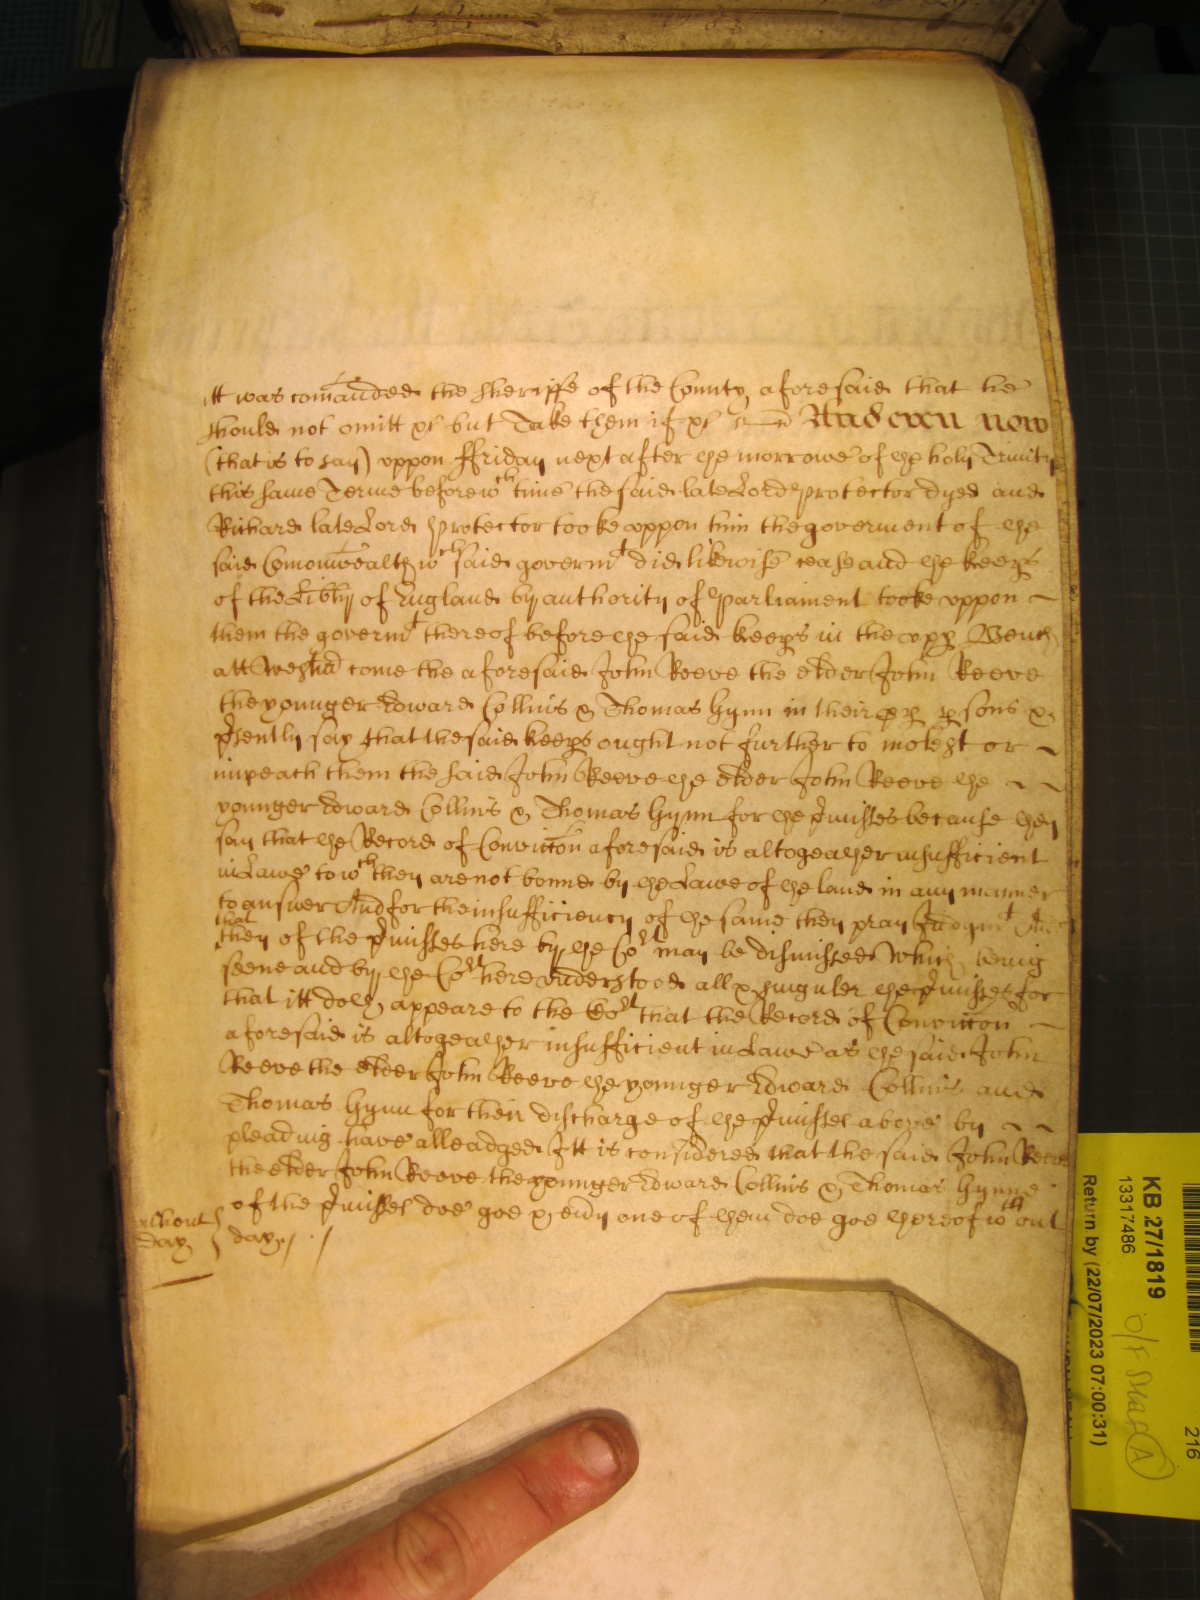 itt was comanded the Sheriffe of the County aforesaid that he
should not omitt &c but Take them if &c And now
(that is to say) uppon ffriday next after the morrowe of the holy Trinity
this same Terme before wch time the said late Lord Protector dyed and
Richard late Lord Protector tooke uppon him the goverment of the
said Comonwealth wch said govermt did likewise cease and the keeps
of the Libty of England by authority of Parliament tooke uppon
them the govermt thereof before the said keeps in the upp Bench
att Westm come the aforesaid John Reeve the elder John Reeve
the younger Edward Collins & Thomas Hynn in their pp psons &
psently say that the said keeps ought not further to molest or
impeach them the said John Reeve the elder John Reeve the
younger Edward Collins & Thomas Hynn for the pmisses because they
say that the Record of Conviccon aforesaid is altogeather insufficient
in Lawe to wch they are not bound by the Lawe of the land in any manner
to answer And for the insufficiency of the same they pray Judgmt And
that they of the pmisses here by the Cort may be dismissed Which being
seene and by the Cort here understood all & singuler the pmisses for
that itt doth appeare to the Cort that the Record of Conviccon
aforesaid is altogeather insufficient in Lawe as the said John
Reeve the elder John Reeve the younger Edward Collins and
Thomas Hynn for their discharge of the pmisses above by
pleading have alleadged Itt is considered that the said John Reeve
the elder John Reeve the younger Edward Collins & Thomas Hynne
of the pmisses doe goe & evy one of them doe goe thereof wthout
day
without
day
KB 27/1819
13317486
Return by (22/07/2023 07:00:31)
216